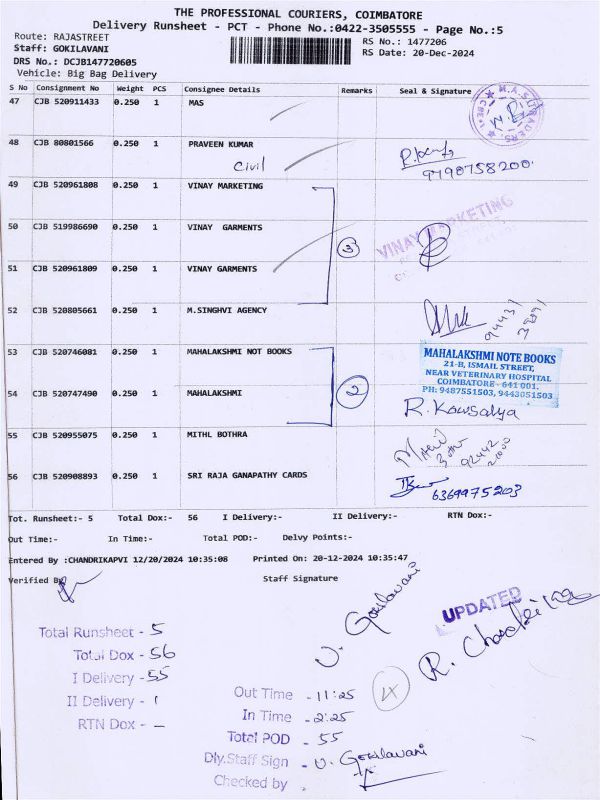 THE PROFESSIONAL COURIERS, COIMBATORE
Delivery Runsheet - PCT - Phone No.:0422-3505555 - Page No.:5
Route: RAJASTREET
Staff: GOKILAVANI
DRS No.: DCJB147720605
Vehicle: Big Bag Delivery
RS No.: 1477206
RS Date: 20-Dec-2024
S No Consignment No Weight PCS Consignee Details Remarks Seal & Signature
47 CJB 520911433 0.250 1 MAS
48 CJB 80801566 0.250 1 PRAVEEN KUMAR
Civil
9790758200
49 CJB 520961808 0.250 1 VINAY MARKETING
VINAY MARKETING
50 CJB 519986690 0.250 1 VINAY GARMENTS
3
51 CJB 520961809 0.250 1 VINAY GARMENTS
52 CJB 520805661 0.250 1 M.SINGHVI AGENCY
53 CJB 520746081 0.250 1 MAHALAKSHMI NOT BOOKS
MAHALAKSHMI NOTE BOOKS
21-B, ISMAIL STREET,
NEAR VETERINARY HOSPITAL
COIMBATORE - 641 001.
PH: 9487551503, 9443051503
54 CJB 520747490 0.250 1 MAHALAKSHMI
2
R. Kowsalya
55 CJB 520955075 0.250 1 MITHL BOTHRA
56 CJB 520908893 0.250 1 SRI RAJA GANAPATHY CARDS
6369975203
Tot. Runsheet:- 5 Total Dox:- 56 I Delivery:- II Delivery:- RTN Dox:-
Out Time:- In Time:- Total POD:- Delvy Points:-
Entered By :CHANDRIKAPVI 12/20/2024 10:35:08 Printed On: 20-12-2024 10:35:47
Verified By Staff Signature
V. Gokilavani
UPDATED
Total Runsheet - 5
Total Dox - 56
I Delivery - 55
II Delivery - 1
RTN Dox - —
Out Time - 11:25
In Time - 2:25
Total POD - 55
Dly.Staff Sign - V. Gokilavani
Checked by